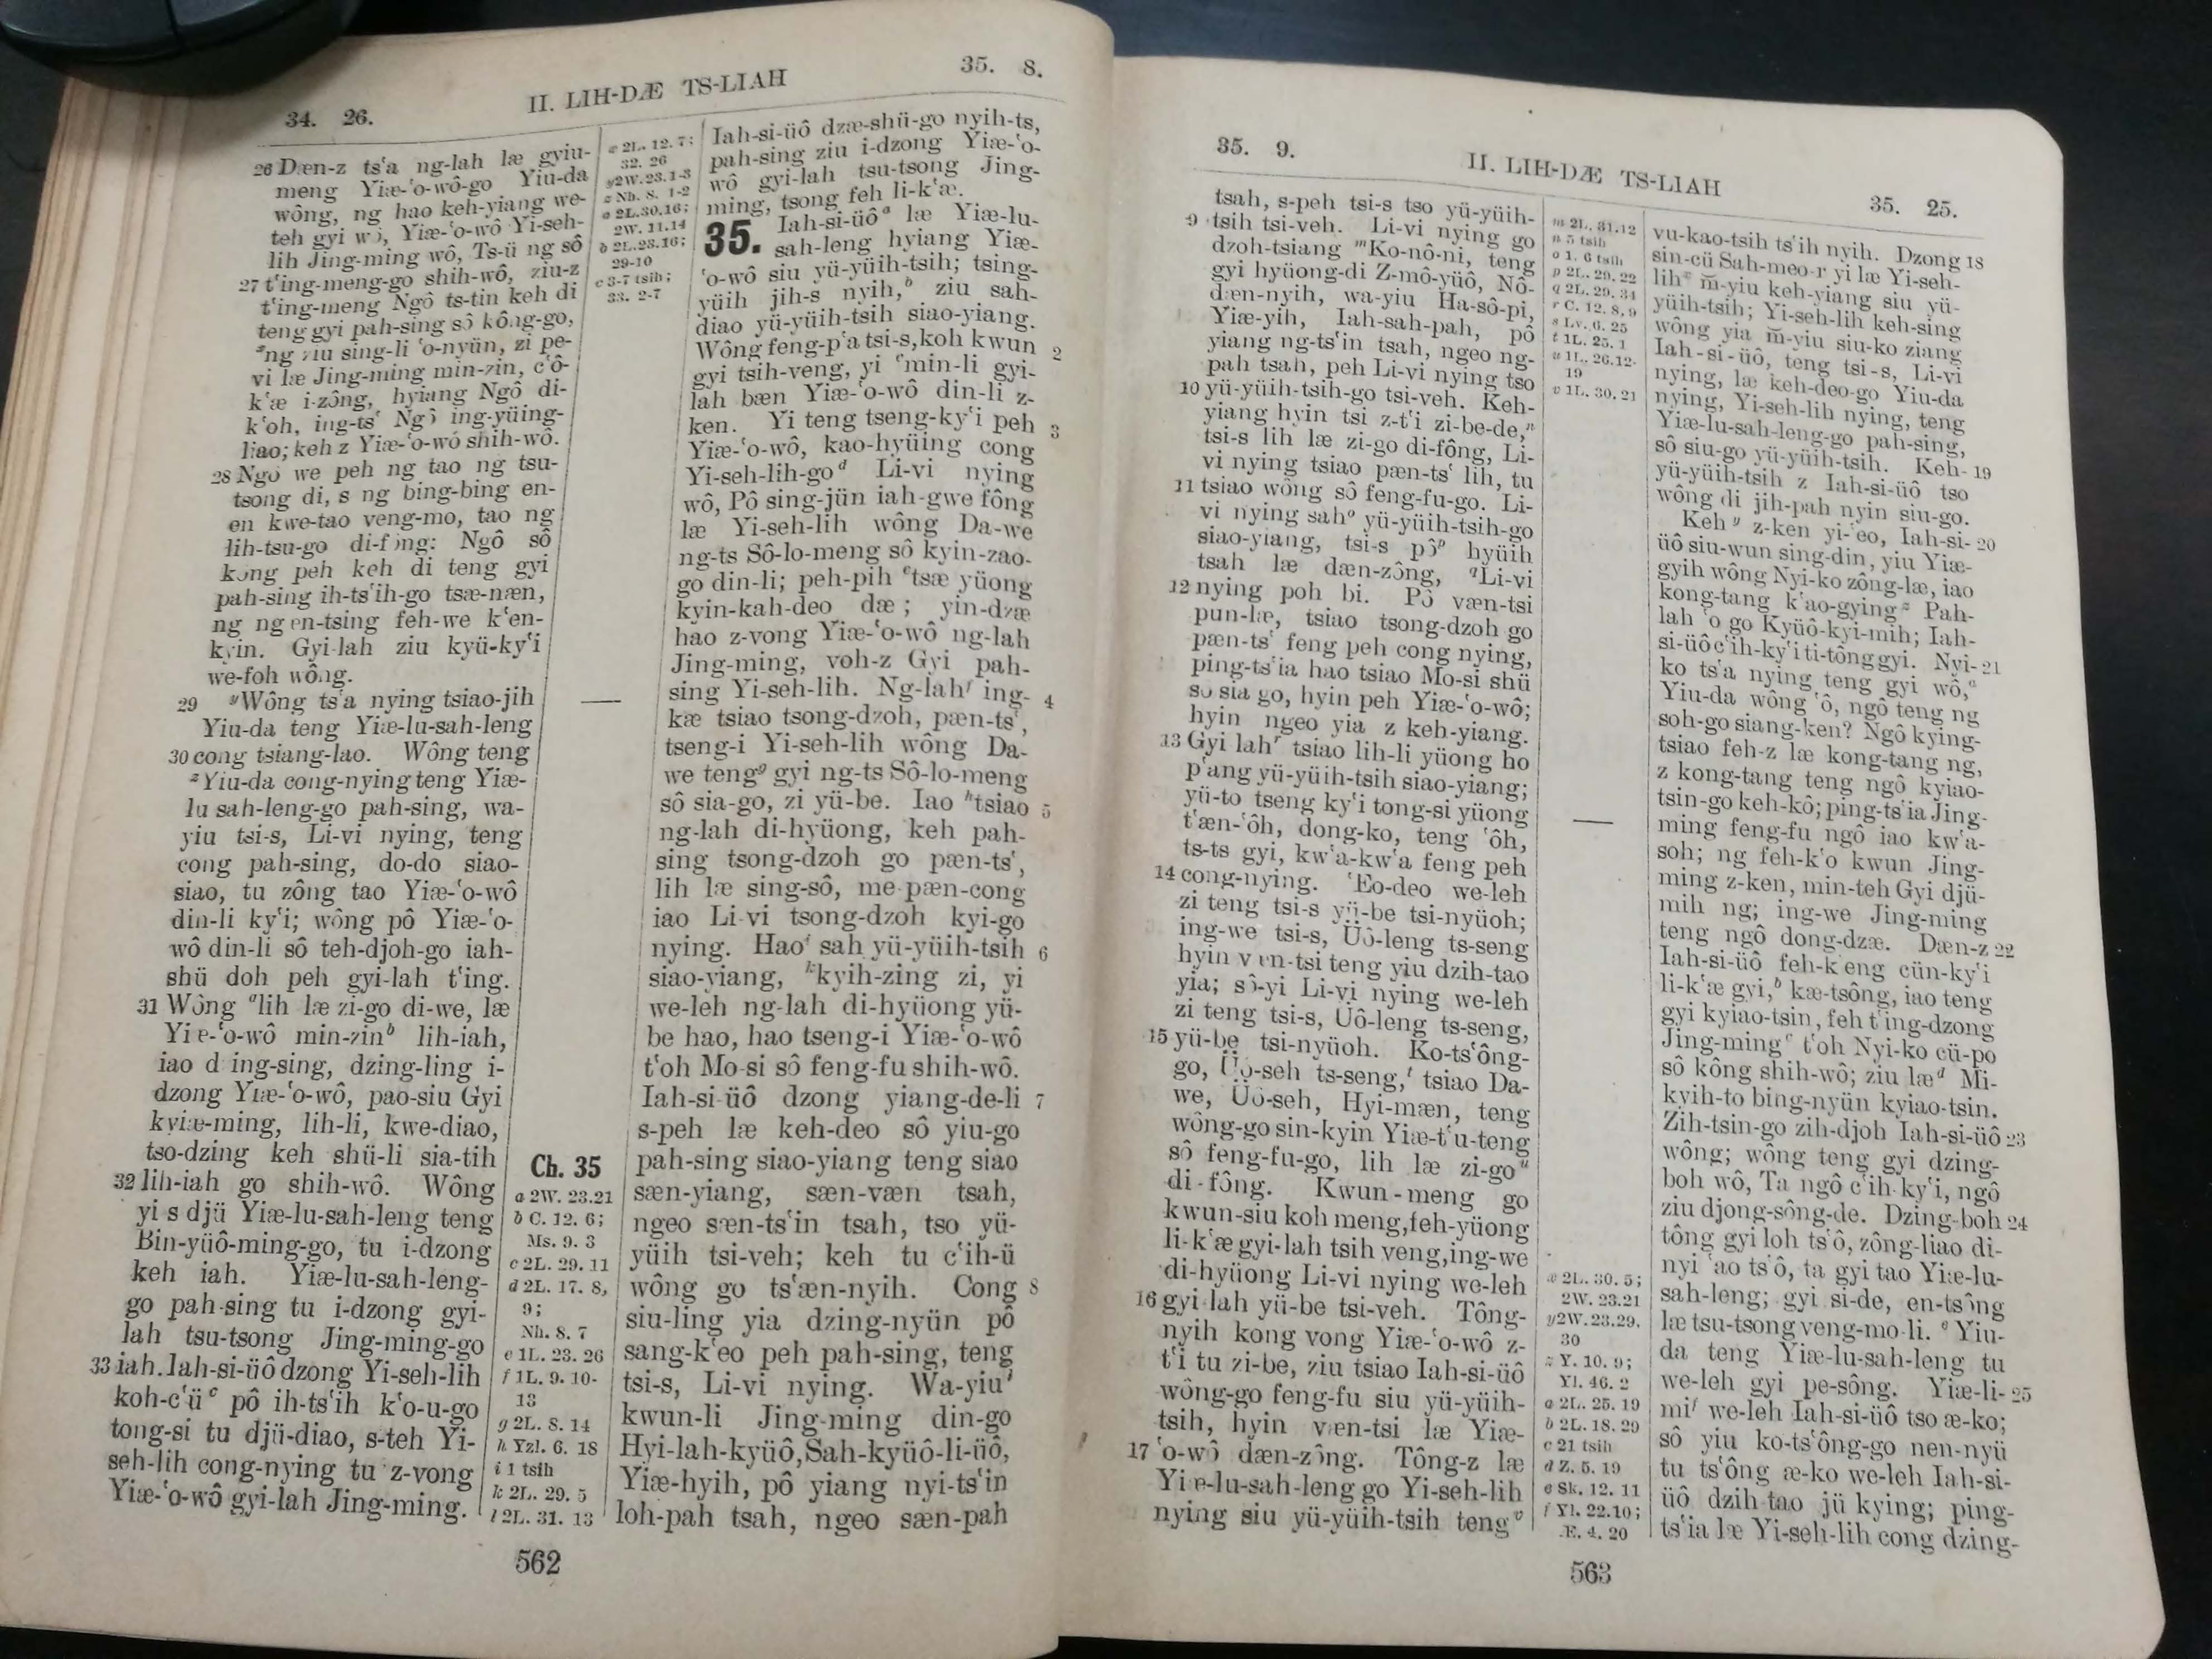 34. 26.
II. LIH-DÆ TS-LIAH
35. 8.
26 Dæn-z ts‘a ng-lah læ gyiu-
meng Yiæ-‘o-wô-go Yiu-da
wông, ng hao keh-yiang we-
teh gyi wô, Yiæ-‘o-wô Yi-seh-
lih Jing-ming wô, Ts-ü ng sô
27 t‘ing-meng-go shih-wô, ziu-z
t‘ing-meng Ngô ts-tin keh di
teng gyi pah-sing sô kông-go,
ng ziu sing-li ‘o-nyün, zi pe-
vi læ Jing-ming min-zin, c‘ô-
k‘æ i-zông, hyiang Ngô di-
k‘oh, ing-ts‘ Ngô ing-yüing-
liao; keh z Yiæ-‘o-wô shih-wô.
28 Ngô we peh ng tao ng tsu-
tsong di, s ng bing-bing en-
en kwe-tao veng-mo, tao ng
lih-tsu-go di-fông: Ngô sô
kông peh keh di teng gyi
pah-sing ih-ts‘ih-go tsæ-næn,
ng ngen-tsing feh-we k‘en-
kyin. Gyi-lah ziu kyü-ky‘i
we-foh wông.
29 yWông ts‘a nying tsiao-jih
Yiu-da teng Yiæ-lu-sah-leng
30 cong tsiang-lao. Wông teng
zYiu-da cong-nying teng Yiæ-
lu sah-leng-go pah-sing, wa-
yiu tsi-s, Li-vi nying, teng
cong pah-sing, do-do siao-
siao, tu zông tao Yiæ-‘o-wô
din-li ky‘i; wông pô Yiæ-‘o-
wô din-li sô teh-djoh-go iah-
shü doh peh gyi-lah t‘ing.
31 Wông alih læ zi-go di-we, læ
Yiæ-‘o-wô min-zinb lih-iah,
iao ding-sing, dzing-ling i-
dzong Yiæ-‘o-wô, pao-siu Gyi
kyiæ-ming, lih-li, kwe-diao,
tso-dzing keh shü-li sia-tih
32 lih-iah go shih-wô. Wông
yi s djü Yiæ-lu-sah-leng teng
Bin-yüô-ming-go, tu i-dzong
keh iah. Yiæ-lu-sah-leng-
go pah-sing tu i-dzong gyi-
lah tsu-tsong Jing-ming-go
33 iah. Iah-si-üô dzong Yi-seh-lih
koh-c‘üc pô ih-ts‘ih k‘o-u-go
tong-si tu djü-diao, s-teh Yi-
seh-lih cong-nying tu z-vong
Yiæ-‘o-wô gyi-lah Jing-ming.
x 2L. 12. 7;
32. 26
y2W.23.1-3
z Nh. 8. 1-2
a 2L.30.16;
2W. 11.14
b 2L.23.16;
29-10
c 3-7 tsih;
33. 2-7
Ch. 35
a 2W. 23.21
b C. 12. 6;
Ms. 9. 3
c 2L. 29. 11
d 2L. 17. 8,
9;
Nh. 8. 7
e 1L. 23. 26
f 1L. 9. 10-
13
g 2L. 8. 14
h Yzl. 6. 18
i 1 tsih
k 2L. 29. 5
l 2L. 31. 13
Iah-si-üô dzæ-shü-go nyih-ts,
pah-sing ziu i-dzong Yiæ-‘o-
wô gyi-lah tsu-tsong Jing-
ming, tsong feh li-k‘æ.
35. Iah-si-üôa læ Yiæ-lu-
sah-leng hyiang Yiæ-
‘o-wô siu yü-yüih-tsih; tsing-
yüih jih-s nyih,b ziu sah-
diao yü-yüih-tsih siao-yiang.
Wông feng-p‘a tsi-s, koh kwun 2
gyi tsih-veng, yi cmin-li gyi-
lah bæn Yiæ-‘o-wô din-li z-
ken. Yi teng tseng-ky‘i peh 3
Yiæ-‘o-wô, kao-hyüing cong
Yi-seh-lih-god Li-vi nying
wô, Pô sing-jün iah-gwe fông
læ Yi-seh-lih wông Da-we
ng-ts Sô-lo-meng sô kyin-zao-
go din-li; peh-pih etsæ yüong
kyin-kah-deo dæ; yin-dzæ
hao z-vong Yiæ-‘o-wô ng-lah
Jing-ming, voh-z Gyi pah-
sing Yi-seh-lih. Ng-lahf ing- 4
kæ tsiao tsong-dzoh, pæn-ts‘,
tseng-i Yi-seh-lih wông Da-
we tengg gyi ng-ts Sô-lo-meng
sô sia-go, zi yü-be. Iao htsiao 5
ng-lah di-hyüong, keh pah-
sing tsong-dzoh go pæn-ts‘,
lih læ sing-sô, me-pæn-cong
iao Li-vi tsong-dzoh kyi-go
nying. Haoi sah yü-yüih-tsih 6
siao-yiang, kkyih-zing zi, yi
we-leh ng-lah di-hyüong yü-
be hao, hao tseng-i Yiæ-‘o-wô
t‘oh Mo-si sô feng-fu shih-wô.
Iah-si-üô dzong yiang-de-li 7
s-peh læ keh-deo sô yiu-go
pah-sing siao-yiang teng siao
sæn-yiang, sæn-væn tsah,
ngeo sæn-ts‘in tsah, tso yü-
yüih tsi-veh; keh tu c‘ih-ü
wông go ts‘æn-nyih. Cong 8
siu-ling yia dzing-nyün pô
sang-k‘eo peh pah-sing, teng
tsi-s, Li-vi nying. Wa-yiul
kwun-li Jing-ming din-go
Hyi-lah-kyüô, Sah-kyüô-li-üô,
Yiæ-hyih, pô yiang nyi-ts‘in
loh-pah tsah, ngeo sæn-pah
562
35. 9.
II. LIH-DÆ TS-LIAH
35. 25.
tsah, s-peh tsi-s tso yü-yüih-
9 tsih tsi-veh. Li-vi nying go
dzoh-tsiang mKo-nô-ni, teng
gyi hyüong-di Z-mô-yüô, Nô-
dæn-nyih, wa-yiu Ha-sô-pi,
Yiæ-yih, Iah-sah-pah, pô
yiang ng-ts‘in tsah, ngeo ng-
pah tsah, peh Li-vi nying tso
10 yü-yüih-tsih-go tsi-veh. Keh-
yiang hyin tsi z-t‘i zi-be-de,n
tsi-s lih læ zi-go di-fông, Li-
vi nying tsiao pæn-ts‘ lih, tu
11 tsiao wông sô feng-fu-go. Li-
vi nying saho yü-yüih-tsih-go
siao-yiang, tsi-s pôp hyüih
tsah læ dæn-zông, qLi-vi
12 nying poh bi. Pô væn-tsi
pun-læ, tsiao tsong-dzoh go
pæn-ts‘ feng peh cong nying,
ping-ts‘ia hao tsiao Mo-si shü
sô sia go, hyin peh Yiæ-‘o-wô;
hyin ngeo yia z keh-yiang.
13 Gyi lahr tsiao lih-li yüong ho
p‘ang yü-yüih-tsih siao-yiang;
yü-to tseng ky‘i tong-si yüong
t‘æn-‘ôh, dong-ko, teng ‘ôh,
ts-ts gyi, kw‘a-kw‘a feng peh
14 cong-nying. ‘Eo-deo we-leh
zi teng tsi-s yü-be tsi-nyüoh;
ing-we tsi-s, Üô-leng ts-seng
hyin væn-tsi teng yiu dzih-tao
yia; sô-yi Li-vi nying we-leh
zi teng tsi-s, Üô-leng ts-seng,
15 yü-be tsi-nyüoh. Ko-ts‘ông-
go, Üô-seh ts-seng,t tsiao Da-
we, Üô-seh, Hyi-mæn, teng
wông-go sin-kyin Yiæ-t‘u-teng
sô feng-fu-go, lih læ zi-gou
di-fông. Kwun-meng go
kwun-siu koh meng, feh-yüong
li-k‘æ gyi-lah tsih veng, ing-we
di-hyüong Li-vi nying we-leh
16 gyi-lah yü-be tsi-veh. Tông-
nyih kong vong Yiæ-‘o-wô z-
t‘i tu zi-be, ziu tsiao Iah-si-üô
wông-go feng-fu siu yü-yüih-
tsih, hyin væn-tsi læ Yiæ-
17 ‘o-wô dæn-zông. Tông-z læ
Yiæ-lu-sah-leng go Yi-seh-lih
nying siu yü-yüih-tsih tengv
m 2L. 31.12
n 5 tsih
o 1. 6 tsih
p 2L. 29. 22
q 2L. 29. 34
r C. 12. 8, 9
s Lv. 6. 25
t 1L. 25. 1
u 1L. 26.12-
19
v 1L. 30. 21
x 2L. 30. 5;
2W. 23.21
y2W.23.29,
30
z Y. 10. 9;
Yl. 46. 2
a 2L. 25. 19
b 2L. 18. 29
c 21 tsih
d Z. 5. 19
e Sk. 12. 11
f Yl. 22.10;
Æ. 4. 20
vu-kao-tsih ts‘ih nyih. Dzong 18
sin-cü Sah-meo-r yi læ Yi-seh-
lihx m̄-yiu keh-yiang siu yü-
yüih-tsih; Yi-seh-lih keh-sing
wông yia m̄-yiu siu-ko ziang
Iah-si-üô, teng tsi-s, Li-vi
nying, læ keh-deo-go Yiu-da
nying, Yi-seh-lih nying, teng
Yiæ-lu-sah-leng-go pah-sing,
sô siu-go yü-yüih-tsih. Keh- 19
yü-yüih-tsih z Iah-si-üô tso
wông di jih-pah nyin siu-go.
Kehy z-ken yi-‘eo, Iah-si- 20
üô siu-wun sing-din, yiu Yiæ-
gyih wông Nyi-ko zông-læ, iao
kong-tang k‘ao-gyingz Pah-
lah ‘o go Kyüô-kyi-mih; Iah-
si-üô c‘ih-ky‘i ti-tông gyi. Nyi- 21
ko ts‘a nying teng gyi wô,a
Yiu-da wông ‘ô, ngô teng ng
soh-go siang-ken? Ngô kying-
tsiao feh-z læ kong-tang ng,
z kong-tang teng ngô kyiao-
tsin-go keh-kô; ping-ts‘ia Jing-
ming feng-fu ngô iao kw‘a-
soh; ng feh-k‘o kwun Jing-
ming z-ken, min-teh Gyi djü-
mih ng; ing-we Jing-ming
teng ngô dong-dzæ. Dæn-z 22
Iah-si-üô feh-k‘eng cün-ky‘i
li-k‘æ gyi,b kæ-tsông, iao teng
gyi kyiao-tsin, feh t‘ing-dzong
Jing-mingc t‘oh Nyi-ko cü-po
sô kông shih-wô; ziu læd Mi-
kyih-to bing-nyün kyiao-tsin.
Zih-tsin-go zih-djoh Iah-si-üô 23
wông; wông teng gyi dzing-
boh wô, Ta ngô c‘ih-ky‘i, ngô
ziu djong-sông-de. Dzing-boh 24
tông gyi loh ts‘ô, zông-liao di-
nyi ‘ao ts‘ô, ta gyi tao Yiæ-lu-
sah-leng; gyi si-de, en-tsông
læ tsu-tsong veng-mo-li. eYiu-
da teng Yiæ-lu-sah-leng tu
we-leh gyi pe-sông. Yiæ-li- 25
mif we-leh Iah-si-üô tso æ-ko;
sô yiu ko-ts‘ông-go nen-nyü
tu ts‘ông æ-ko we-leh Iah-si-
üô dzih-tao jü kying; ping-
ts‘ia læ Yi-seh-lih cong dzing-
563